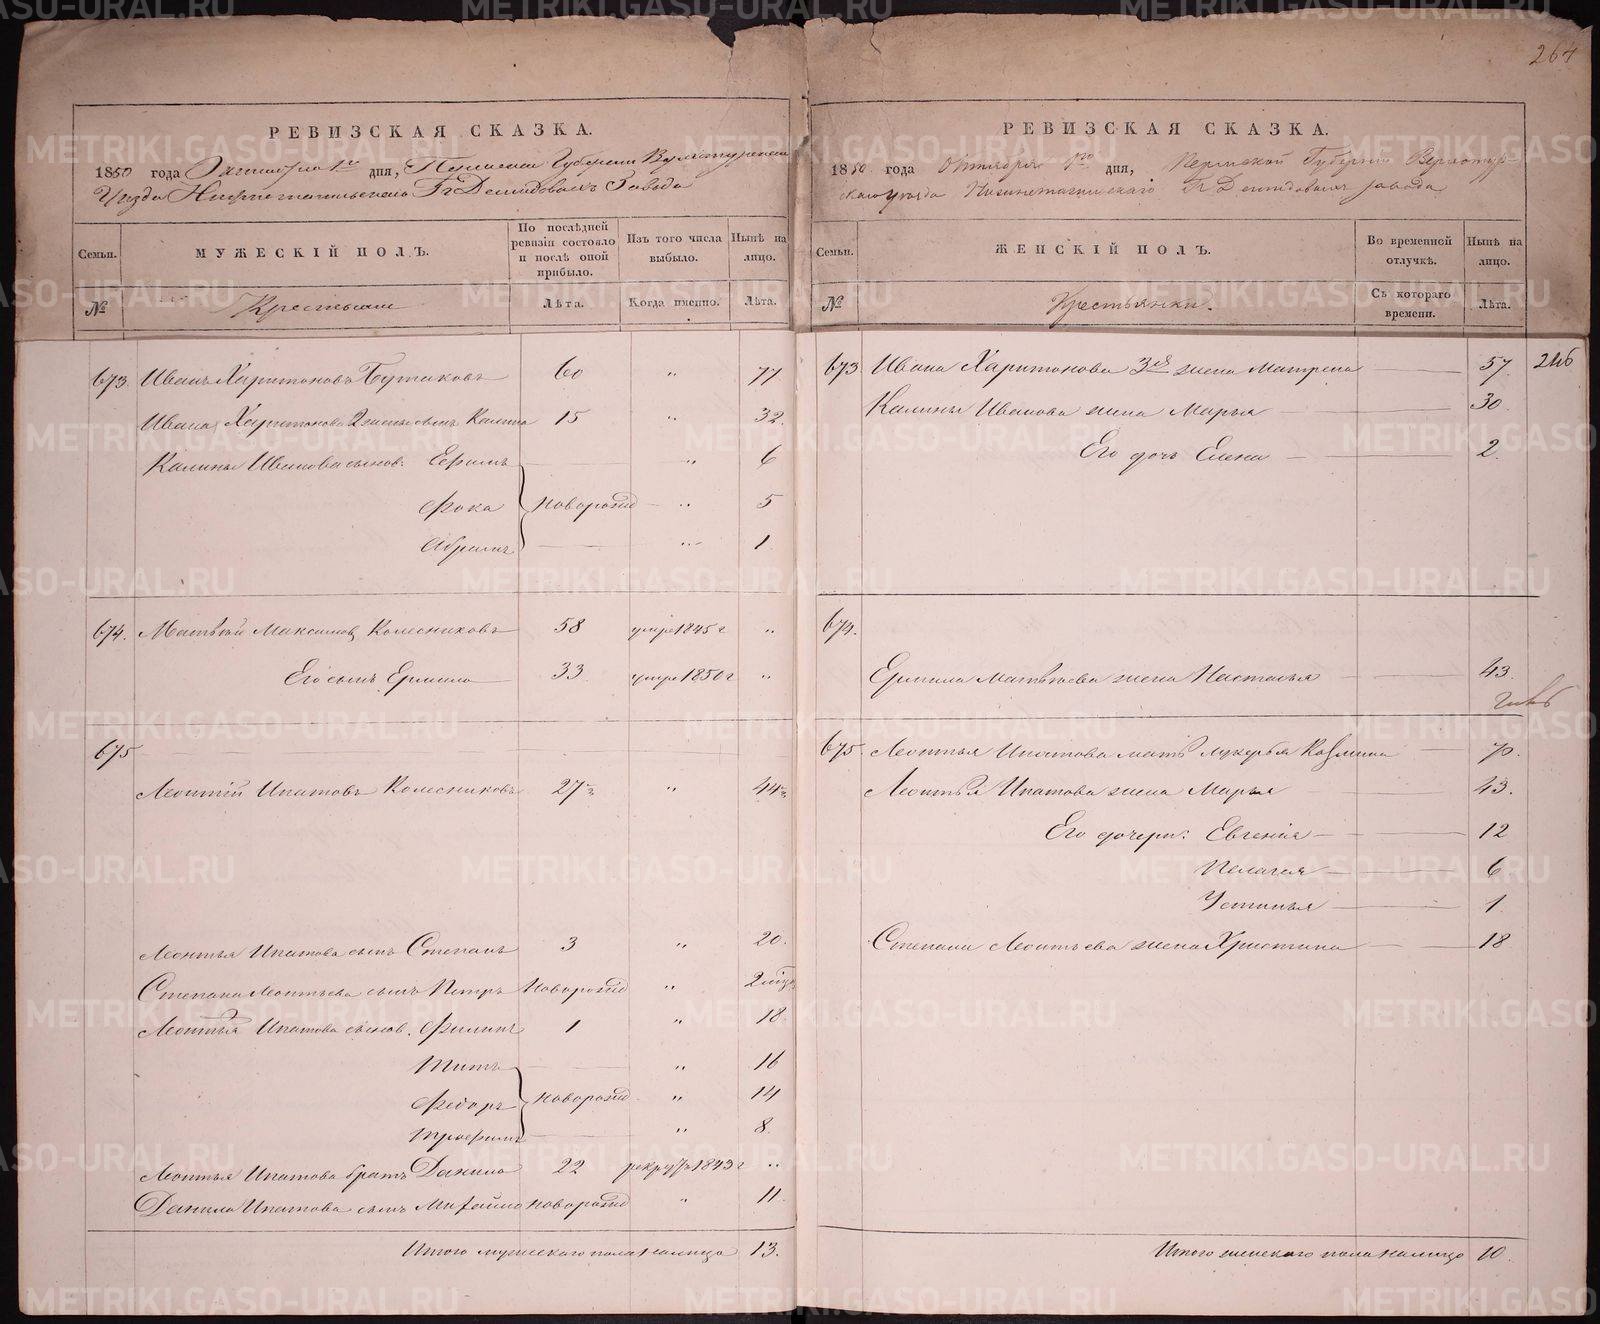 264
РЕВИЗСКАЯ СКАЗКА.
1850 года Октября 1го дня, Пермской Губернии Верхотурскаго
Уезда Нижнетагильскаго Гг Демидовыхъ Завода
Семьи.
МУЖЕСКІЙ ПОЛЪ.
По послѣдней ревизіи состояло и послѣ оной прибыло.
Изъ того числа выбыло.
Нынѣ на лицо.
№
Крестьяне
Лѣта.
Когда именно.
Лѣта.
673 Иванъ Харитоновъ Бутаковъ 60 " 77
Ивана Харитонова 2 жены сынъ Калина 15 " 32.
Калины Иванова сынов: Ефимъ " 6
Фока новорожд " 5
Абрамъ " 1
674. Матвѣй Максимов Колесниковъ 58 умре 1845 г "
Его сынъ Ермила 33 умре 1850 г "
675
Леонтій Ипатовъ Колесниковъ 27 ½ " 44 ½
Леонтья Ипатова сынъ Степанъ 3 " 20.
Степана Леонтьева сынъ Петръ новорожд " 2 мѣц
Леонтья Ипатова сынов. Филипъ 1 " 18
Титъ " 16
Федоръ новорожд " 14
Трофимъ " 8
Леонтья Ипатова братъ Данило 22 рекру 1843 г "
Данила Ипатова сынъ Михайло новорожд " 11
Итого мужескаго пола налицо 13.
РЕВИЗСКАЯ СКАЗКА.
1850 года Октября 1го дня, Пермской Губерніи Верхотур-
скаго уезда Нижнетагильскаго Гг Демидовыхъ завода
Семьи.
ЖЕНСКІЙ ПОЛЪ.
Во временной отлучкѣ.
Нынѣ на лицо.
№
Крестьянки.
Съ котораго времени.
Лѣта.
673 Ивана Харитонова 3я жена Матрена 57
Калины Иванова жена Марья 30
Его дочь Елена 2
674.
Ермила Матвѣева жена Настасья 43.
675. Леонтья Ипатова мать Лукерья Козмина 70.
Леонтья Ипатова жена Марья 43.
Его дочери: Евгенія 12
Пелагея 6
Устинья 1
Степана Леонтьева жена Христина 18
Итого женскаго пола налицо 10.
METRIKI.GASO-URAL.RU